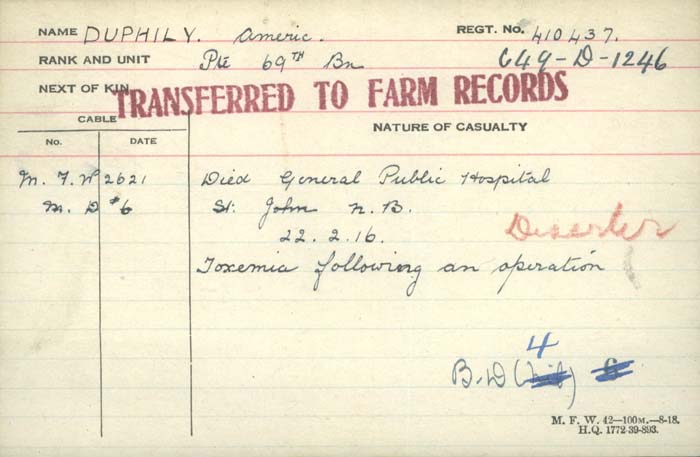 NAME DUPHILY. Americ. REGT. No. 410437.
RANK AND UNIT Pte 69TH Bn 649-D-1246
NEXT OF KIN
TRANSFERRED TO FARM RECORDS
CABLE NATURE OF CASUALTY
No. DATE
M. F. W 2621 Died General Public Hospital
M. D #6 St. John N.B.
22.2.16. Deserter
Toxemia following an operation
4
B.D ( )
M. F. W. 42—100M.—8-18.
H.Q. 1772-39-893.